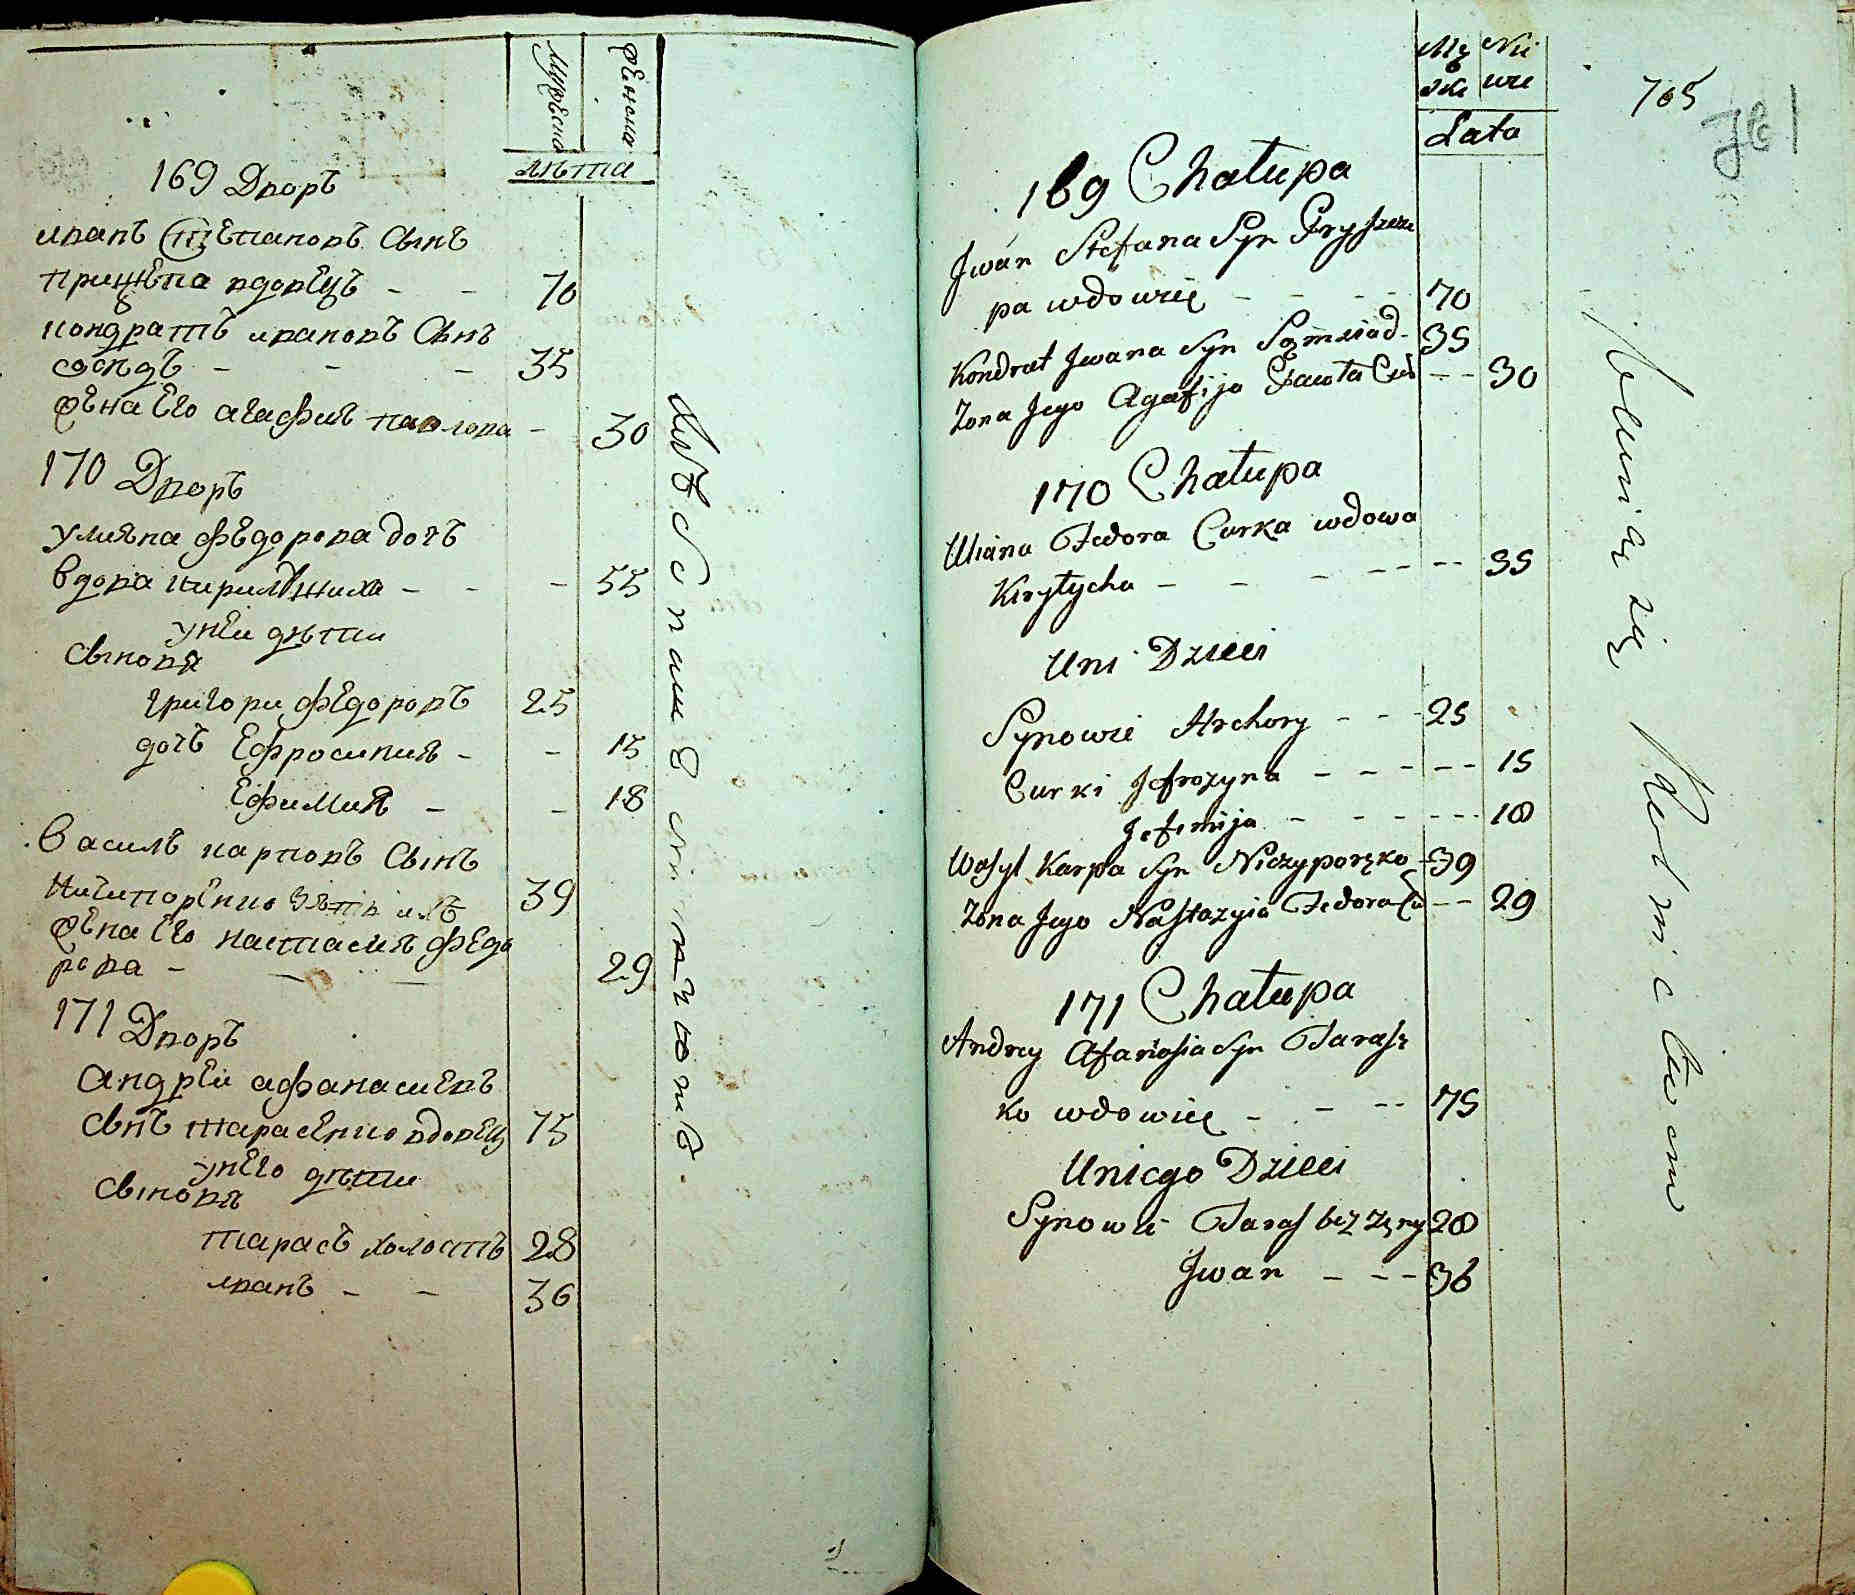 Мужеска
Женска
лѣта
169 Дворъ
иванъ Степановъ Сынъ
прищѣпа вдовецъ - - 70
кондратъ ивановъ Сынъ
сосѣдъ - - - 35
жена Его агафия павлова - 30
170 Дворъ
улияна фЕдорова дочъ
вдова кирилъчиха - - - 55
унЕи дѣти
Сыновя
григори фЕдоровъ 25
дочъ Ефросиния - - 15
Ефимия - - 18
Василъ карповъ Сынъ
Ничипоренко зять ихъ 39
жена Его настасия фЕдо
рова - 29
171 Дворъ
андрЕи афанасиевъ
Сынъ тарасЕнко вдовЕцъ 75
унЕго дѣти
Сыновя
тарасъ холостъ 28
иванъ - - 36
Mę Nie
skie wie
Lata
705
761
169 Chałupa
Jwan Stefana Syn Pryszcze
pa wdowiec - - - - 70
Kondrat Jwana Syn Sąmsiad - 35
Zona Jego Agafija Pawła Cur -- 30
170 Chałupa
Uliana Fedora Curka wdowa
Kiryłycha - - - - - - 35
Uni Dzieci
Synowie Hrehory - - - 25
Curki Jefrozyna - - - - - 15
Jefemija - - - - - 18
Wasyl Karpa Syn Niczyporęko - 39
Zona Jego Nastazyia Fedora Cu -- 29
171 Chałupa
Andrey Afanasia Syn Tarasę
ko wdowiec - - -- 75
Uniego Dzieci
Synowie Taras bez żęny 28
Jwan - - - 36